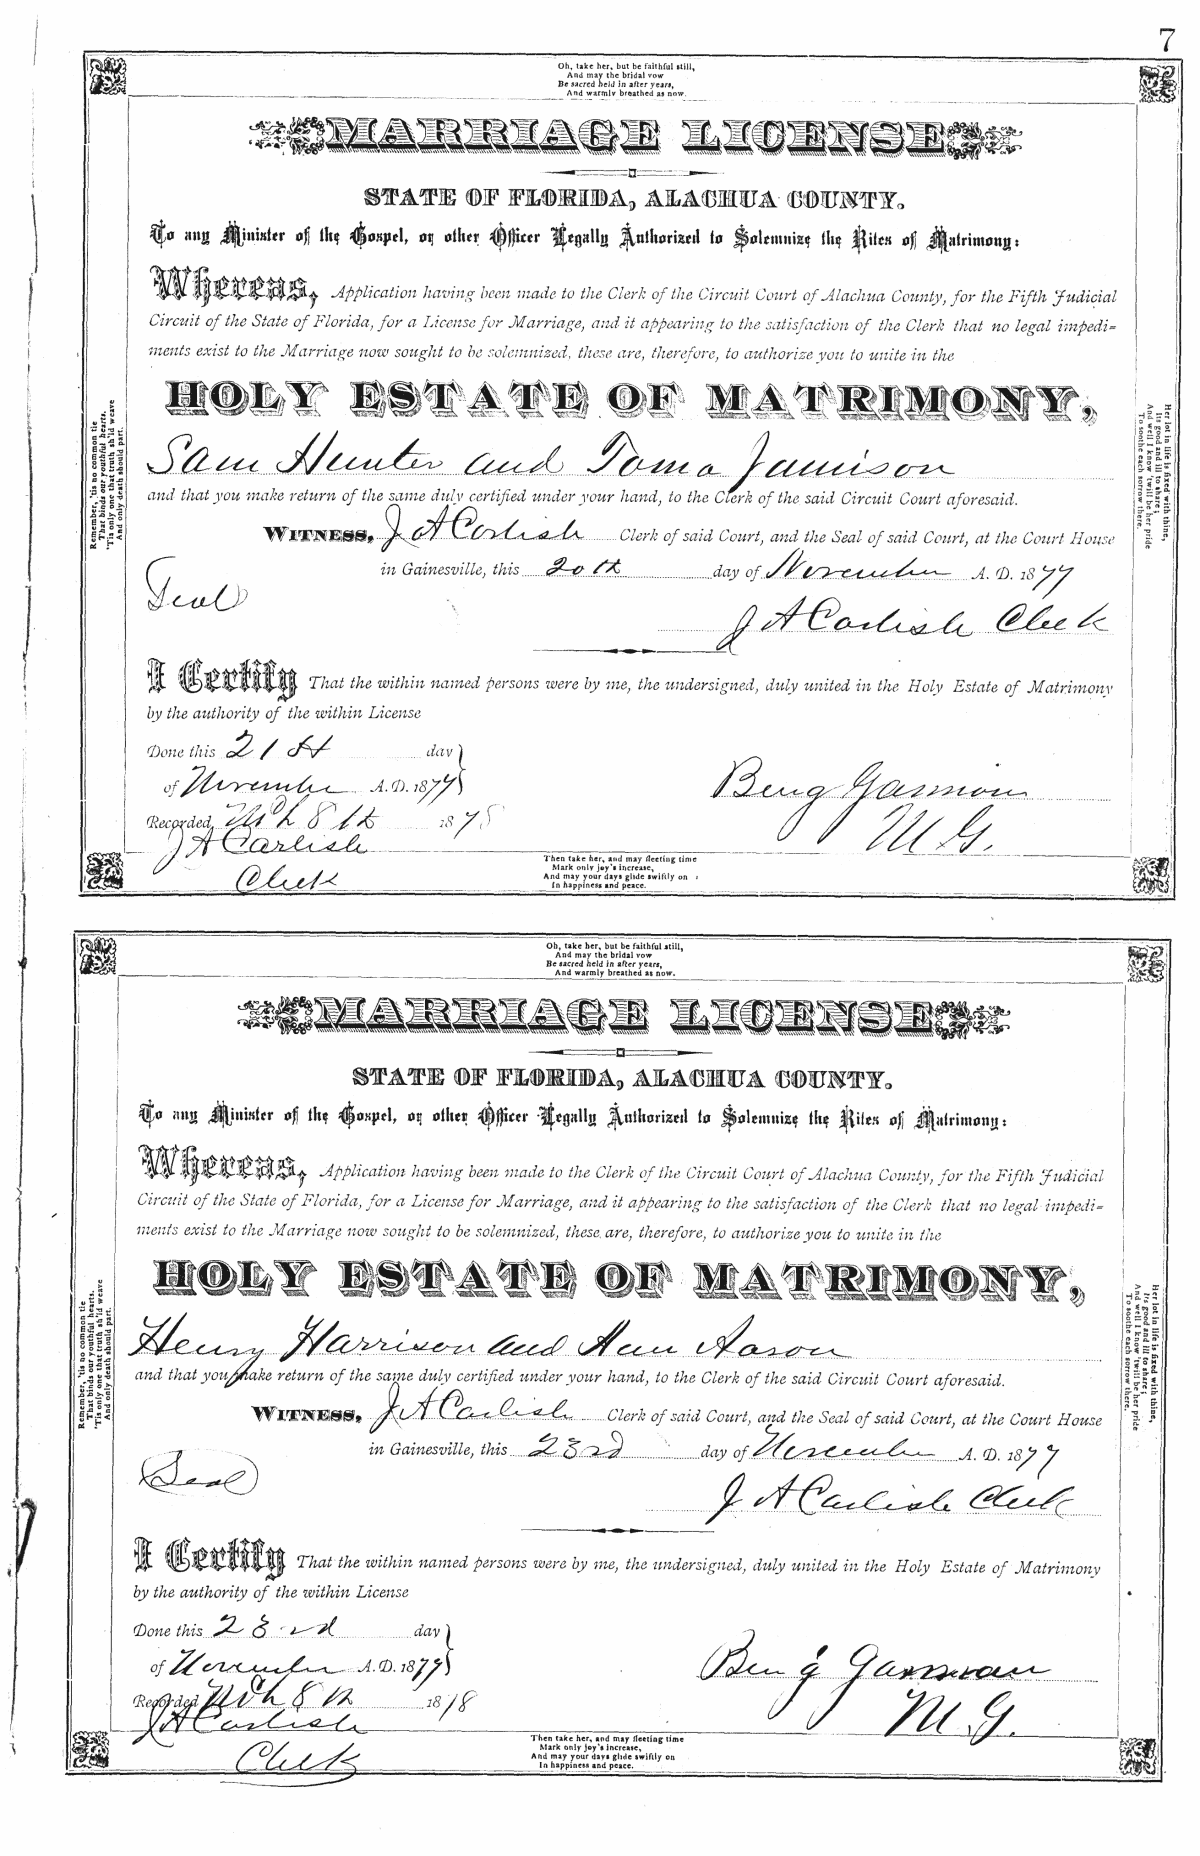 7
Oh, take her, but be faithful still,
And may the bridal vow
Be sacred held in after years,
And warmly breathed as now.
MARRIAGE LICENSE
STATE OF FLORIDA, ALACHUA COUNTY.
To any Minister of the Gospel, or other Officer Legally Authorized to Solemnize the Rites of Matrimony:
Whereas, Application having been made to the Clerk of the Circuit Court of Alachua County, for the Fifth Judicial
Circuit of the State of Florida, for a License for Marriage, and it appearing to the satisfaction of the Clerk that no legal impedi=
ments exist to the Marriage now sought to be solemnized, these are, therefore, to authorize you to unite in the
HOLY ESTATE OF MATRIMONY,
Sam Hunter and Toma Jamison
and that you make return of the same duly certified under your hand, to the Clerk of the said Circuit Court aforesaid.
WITNESS, J A Carlisle Clerk of said Court, and the Seal of said Court, at the Court House
in Gainesville, this 20th day of November A. D. 1877
Seal
J A Carlisle Clerk
I Certify That the within named persons were by me, the undersigned, duly united in the Holy Estate of Matrimony
by the authority of the within License
Done this 21st day
of November A.D. 1877
Benj
M G.
Recorded Mch 8th 1878
J A Carlisle
Clerk
Remember, 'tis no common tie
That binds our youthful hearts,
'Tis only one that truth sh'ld weave
And only death should part.
Her lot in life is fixed with thine,
Its good and ill to share;
And well I know 'twill be her pride
To soothe each sorrow there.
Then take her, and may fleeting time
Mark only joy's increase,
And may your days glide swiftly on
In happiness and peace.
Oh, take her, but be faithful still,
And may the bridal vow
Be sacred held in after years,
And warmly breathed as now.
MARRIAGE LICENSE
STATE OF FLORIDA, ALACHUA COUNTY.
To any Minister of the Gospel, or other Officer Legally Authorized to Solemnize the Rites of Matrimony:
Whereas, Application having been made to the Clerk of the Circuit Court of Alachua County, for the Fifth Judicial
Circuit of the State of Florida, for a License for Marriage, and it appearing to the satisfaction of the Clerk that no legal impedi=
ments exist to the Marriage now sought to be solemnized, these are, therefore, to authorize you to unite in the
HOLY ESTATE OF MATRIMONY,
Henry Harrison and Ann Aaron
and that you make return of the same duly certified under your hand, to the Clerk of the said Circuit Court aforesaid.
WITNESS, J A Carlisle Clerk of said Court, and the Seal of said Court, at the Court House
in Gainesville, this 23rd day of November A. D. 1877
Seal
J A Carlisle Clerk
I Certify That the within named persons were by me, the undersigned, duly united in the Holy Estate of Matrimony
by the authority of the within License
Done this 23rd day
of November A.D. 1877
Benj
M. G.
Recorded Mch 8th 1878
J A Carlisle
Clerk
Remember, 'tis no common tie
That binds our youthful hearts,
'Tis only one that truth sh'ld weave
And only death should part.
Her lot in life is fixed with thine,
Its good and ill to share;
And well I know 'twill be her pride
To soothe each sorrow there.
Then take her, and may fleeting time
Mark only joy's increase,
And may your days glide swiftly on
In happiness and peace.